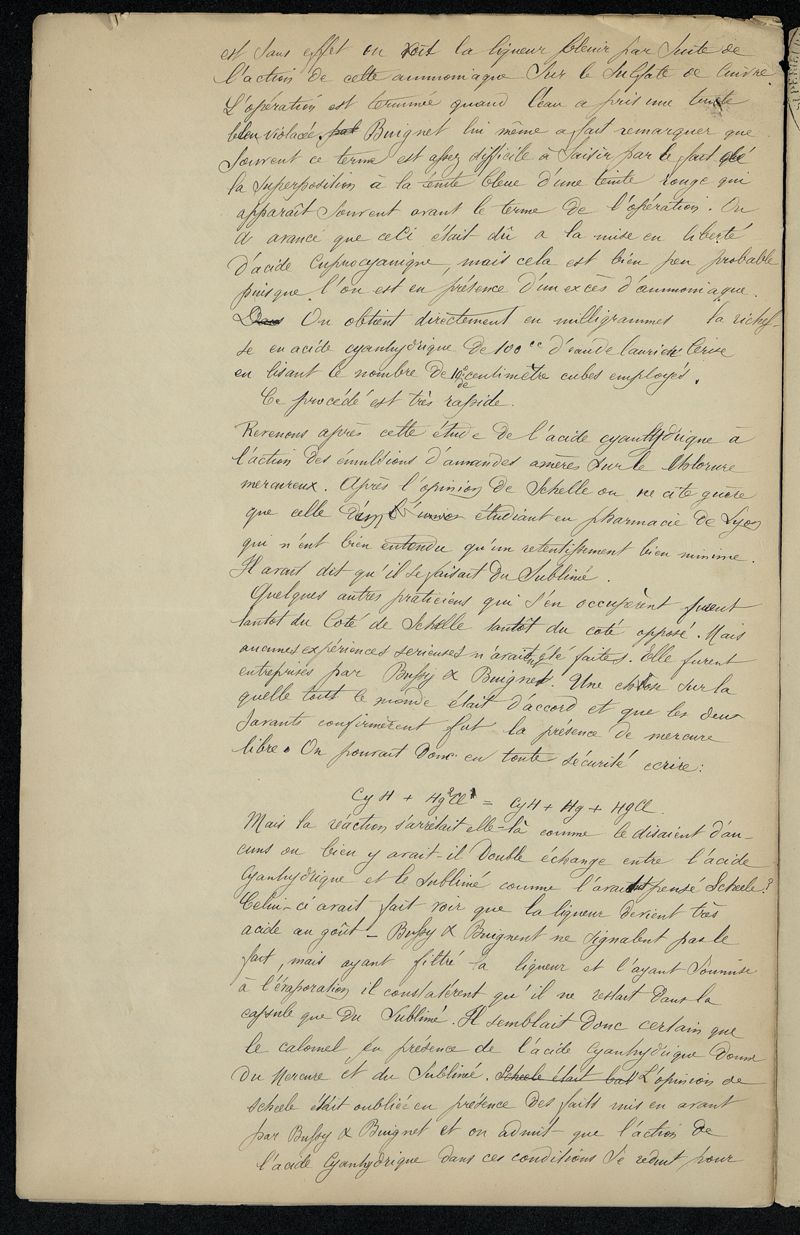 est sans effet on voit la liqueur bleuir par suite de
l'action de cette ammoniaque sur le sulfate de cuivre.
L'opération est terminée quand l'eau a pris une teinte
bleu violacée. par Buignet lui même a fait remarquer que
souvent ce terme est assez difficile à saisir par le fait que
la superposition à la teinte bleue d'une teinte rouge qui
apparaît souvent avant le terme de l'opération. On
a avancé que celi était dû a la mise en liberté
d'acide cuprocyanique, mais cela est bien peu probable
puisque l'on est en présence d'un excès d'ammoniaque.
Dans On obtient directement en milligrammes la riches-
se en acide cyanhydrique de 100cc d'eau de laurier cerise
en lisant le nombre de 10e de centimètre cubes employés.
Ce procédé est très rapide.
Revenons après cette étude de l'acide cyanhydrique à
l'action des émulsions d'amandes amères sur le chlorure
mercureux. Après l'opinion de Schelle on ne cite guère
que celle étudiant en pharmacie de Lyon
qui n'eut bien entendu qu'un retentissement bien minime.
Il avait dit qu'il se faisait du Sublimé.
Quelques autres praticiens qui s'en occupèrent furent
tantot du coté de Schelle tantôt du coté opposé. Mais
aucunes expériences serieuses n'avait été faites. Elle furent
entreprises par Bussy & Buignet. Une chose sur la
quelle tout le monde était d'accord et que les deux
savants confirmèrent fut la présence de mercure
libre. On pouvait donc en toute sécurité ecrire:
CyH + Hg²Cl = CyH + Hg + HgCl.
Mais la réaction s'arrêtait elle-là comme le disaient d'au-
cuns ou bien y avait-il double échange entre l'acide
cyanhydrique et le sublimé comme l'avait pensé Scheele?
Celui-ci avait fait voir que la liqueur devient très
acide au goût - Bussy & Buignent ne signalent pas le
fait, mais ayant filtré la liqueur et l'ayant soumise
à l'évaporation il constatèrent qu'il ne restait dans la
capsule que du Sublimé. Il semblait donc certain que
le calomel en présence de l'acide cyanhydrique donne
du Mercure et du Sublimé. Scheele était L'opinion de
Scheele était oubliée en présence des faits mis en avant
par Bussy & Buignet et on admit que l'action de
l'acide cyanhydrique dans ces conditions se reduit pour